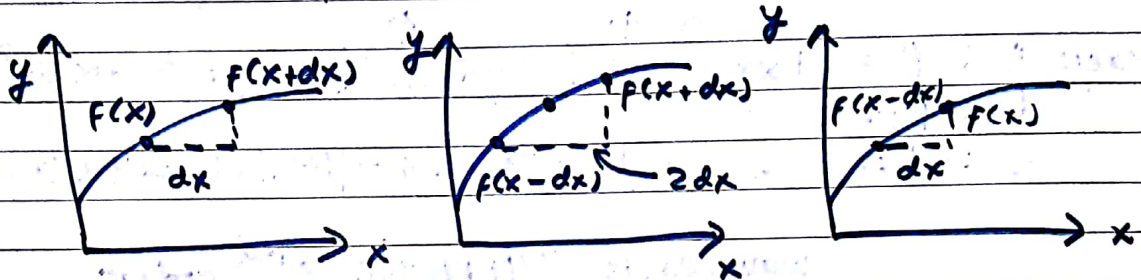 y
f(x+dx)
f(x)
dx
x
y
f(x+dx)
f(x-dx)
2dx
x
y
f(x-dx)
f(x)
dx
x